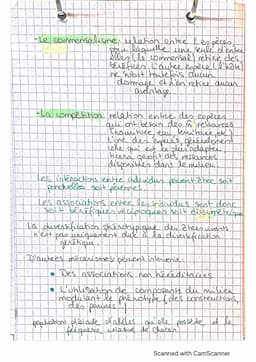 - Le commensalisme: relation entre 2 espèces
pour laquelle une seule d'entre
elles (le commensal) retire des
bénéfices. L'autre espèce (l'hôte)
ne subit toutefois aucun
dommage et n'en retire aucun
avantage
- La compétition: relation entre des espèces
qui ont besoin des m ressources
(nourriture, eau, territoire, etc)
L'une des espèces, généralement
celle qui est la plus adaptée,
tirera profit des ressources
disponibles dans le milieu.
Les interactions entre individus peuvent être soit
ponctuelles soit pérennes.
Les associations entre les individus sont donc
soit bénéfiques réciproques soit dissymétriques
La diversification phénotypique des êtres vivants
n'est pas uniquement due à la diversification
génétique.
D'autres mécanismes peuvent intervenir:
• Des associations non héréditaires
• L'utilisation de composants du milieu
modulant le phénotype (des constructions,
des parures)
population d'allèles qu'elle possède et la
fréquence relative de chacun
Scanned with CamScanner